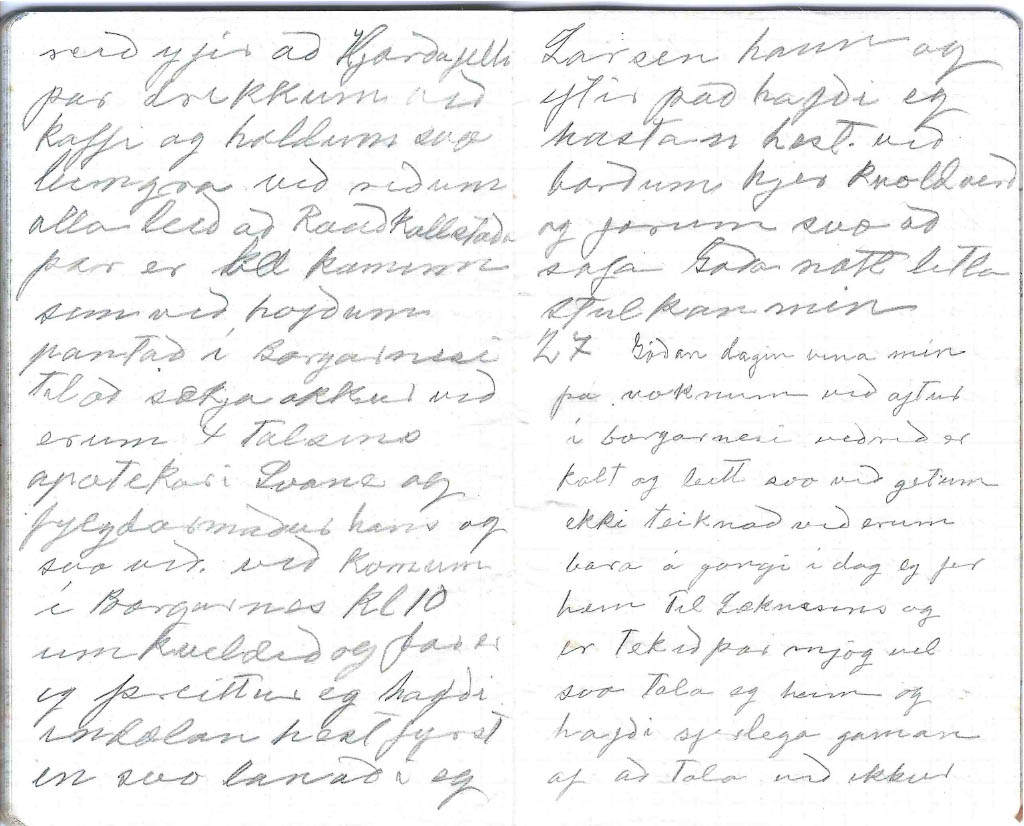 reið yfir að Hjarðafelli
þar drekkum við
kaffi og holdum svo
leingra við riðum
alla leið að Rauðkallstöðu
þar er bíl kominn
sem við hofðum
pantað í Borgarnesi
til að sækja okkur við
erum 4 talsins
apotekari Svane og
fylgdarmaður hans og
svo við. við komum
í Borgarnes kl 10
um kveldið og þar er
eg þreittur eg hafði
indælan hest fyrst
en svo lanaði eg
Larsen hann og
eftir það hafði eg
hastan hest. við
borðum hjer kvoldverð
og forum svo að
sofa Goða nott litla
stulkan min
27 Góðan dagin vina min
þá voknum við aftur
í borgarnesi veðrið er
kalt og leitt svo við getum
ekki teiknað við erum
bara á gangi í dag eg fer
heim til Læknisins og
er tekið þar mjög vel
svo tala eg heim og
hafði sjerlega gaman
af að tala við ikkur